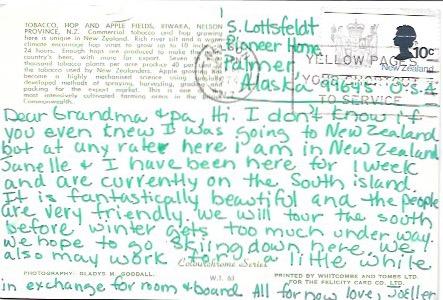 TOBACCO, HOP AND APPLE FIELDS, RIWAKA, NELSON
PROVINCE, N.Z. Commercial tobacco and hop growing
here is unique in New Zealand. Rich river silt and a warm
climate encourage hop vines to grow up to 10 inches in
24 hours. Enough hops are produced to make the
country's beer, with more for export. Seven
thousand tobacco plants per acre produce 40 per cent of
the tobacco used by New Zealanders. Apple growing
become a highly mechanised science using
developed methods of spraying, harvesting, grading
packing for the export market. This is one of the
most intensively cultivated farming areas in the
Commonwealth.
S. Lottsfeldt
Pioneer Home
Palmer
Alaska 99645 U.S.A
10c
New Zealand
YELLOW PAGES
YOUR
TO SERVICE
Dear Grandma & pa, Hi. I don't know if
you even knew I was going to New Zealand
but at any rate, here I am in New Zealand
Janelle & I have been here for 1 week
and are currently on the South island.
It is fantastically beautiful and the people
are very friendly. we will tour the south
before winter gets too much under way.
we hope to go skiing down here. we
also may work for a little while
Colourchrome Series
PHOTOGRAPHY: GLADYS M. GOODALL.
W.T. 63
PRINTED BY WHITCOMBE AND TOMBS LTD.
FOR THE FELICITY CARD CO. LTD.
in exchange for room & board. All for now love, Joellen